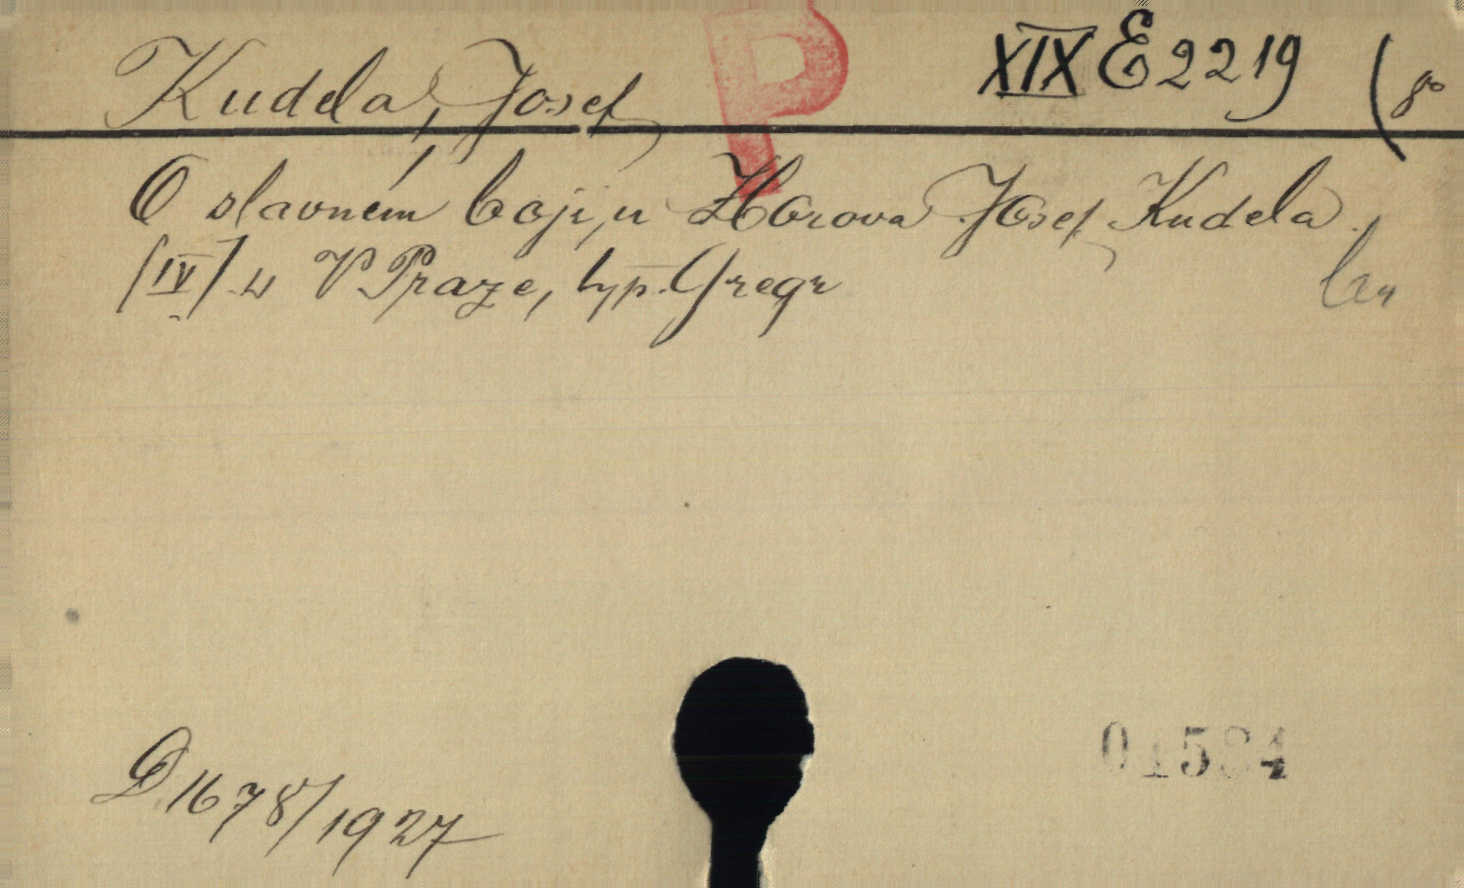 Kudela, Josef P XIX E 2219 (8°
O slavném boji u Zborova Josef Kudela.
[IV] s V Praze, typ. Gregr
D 1678/1927